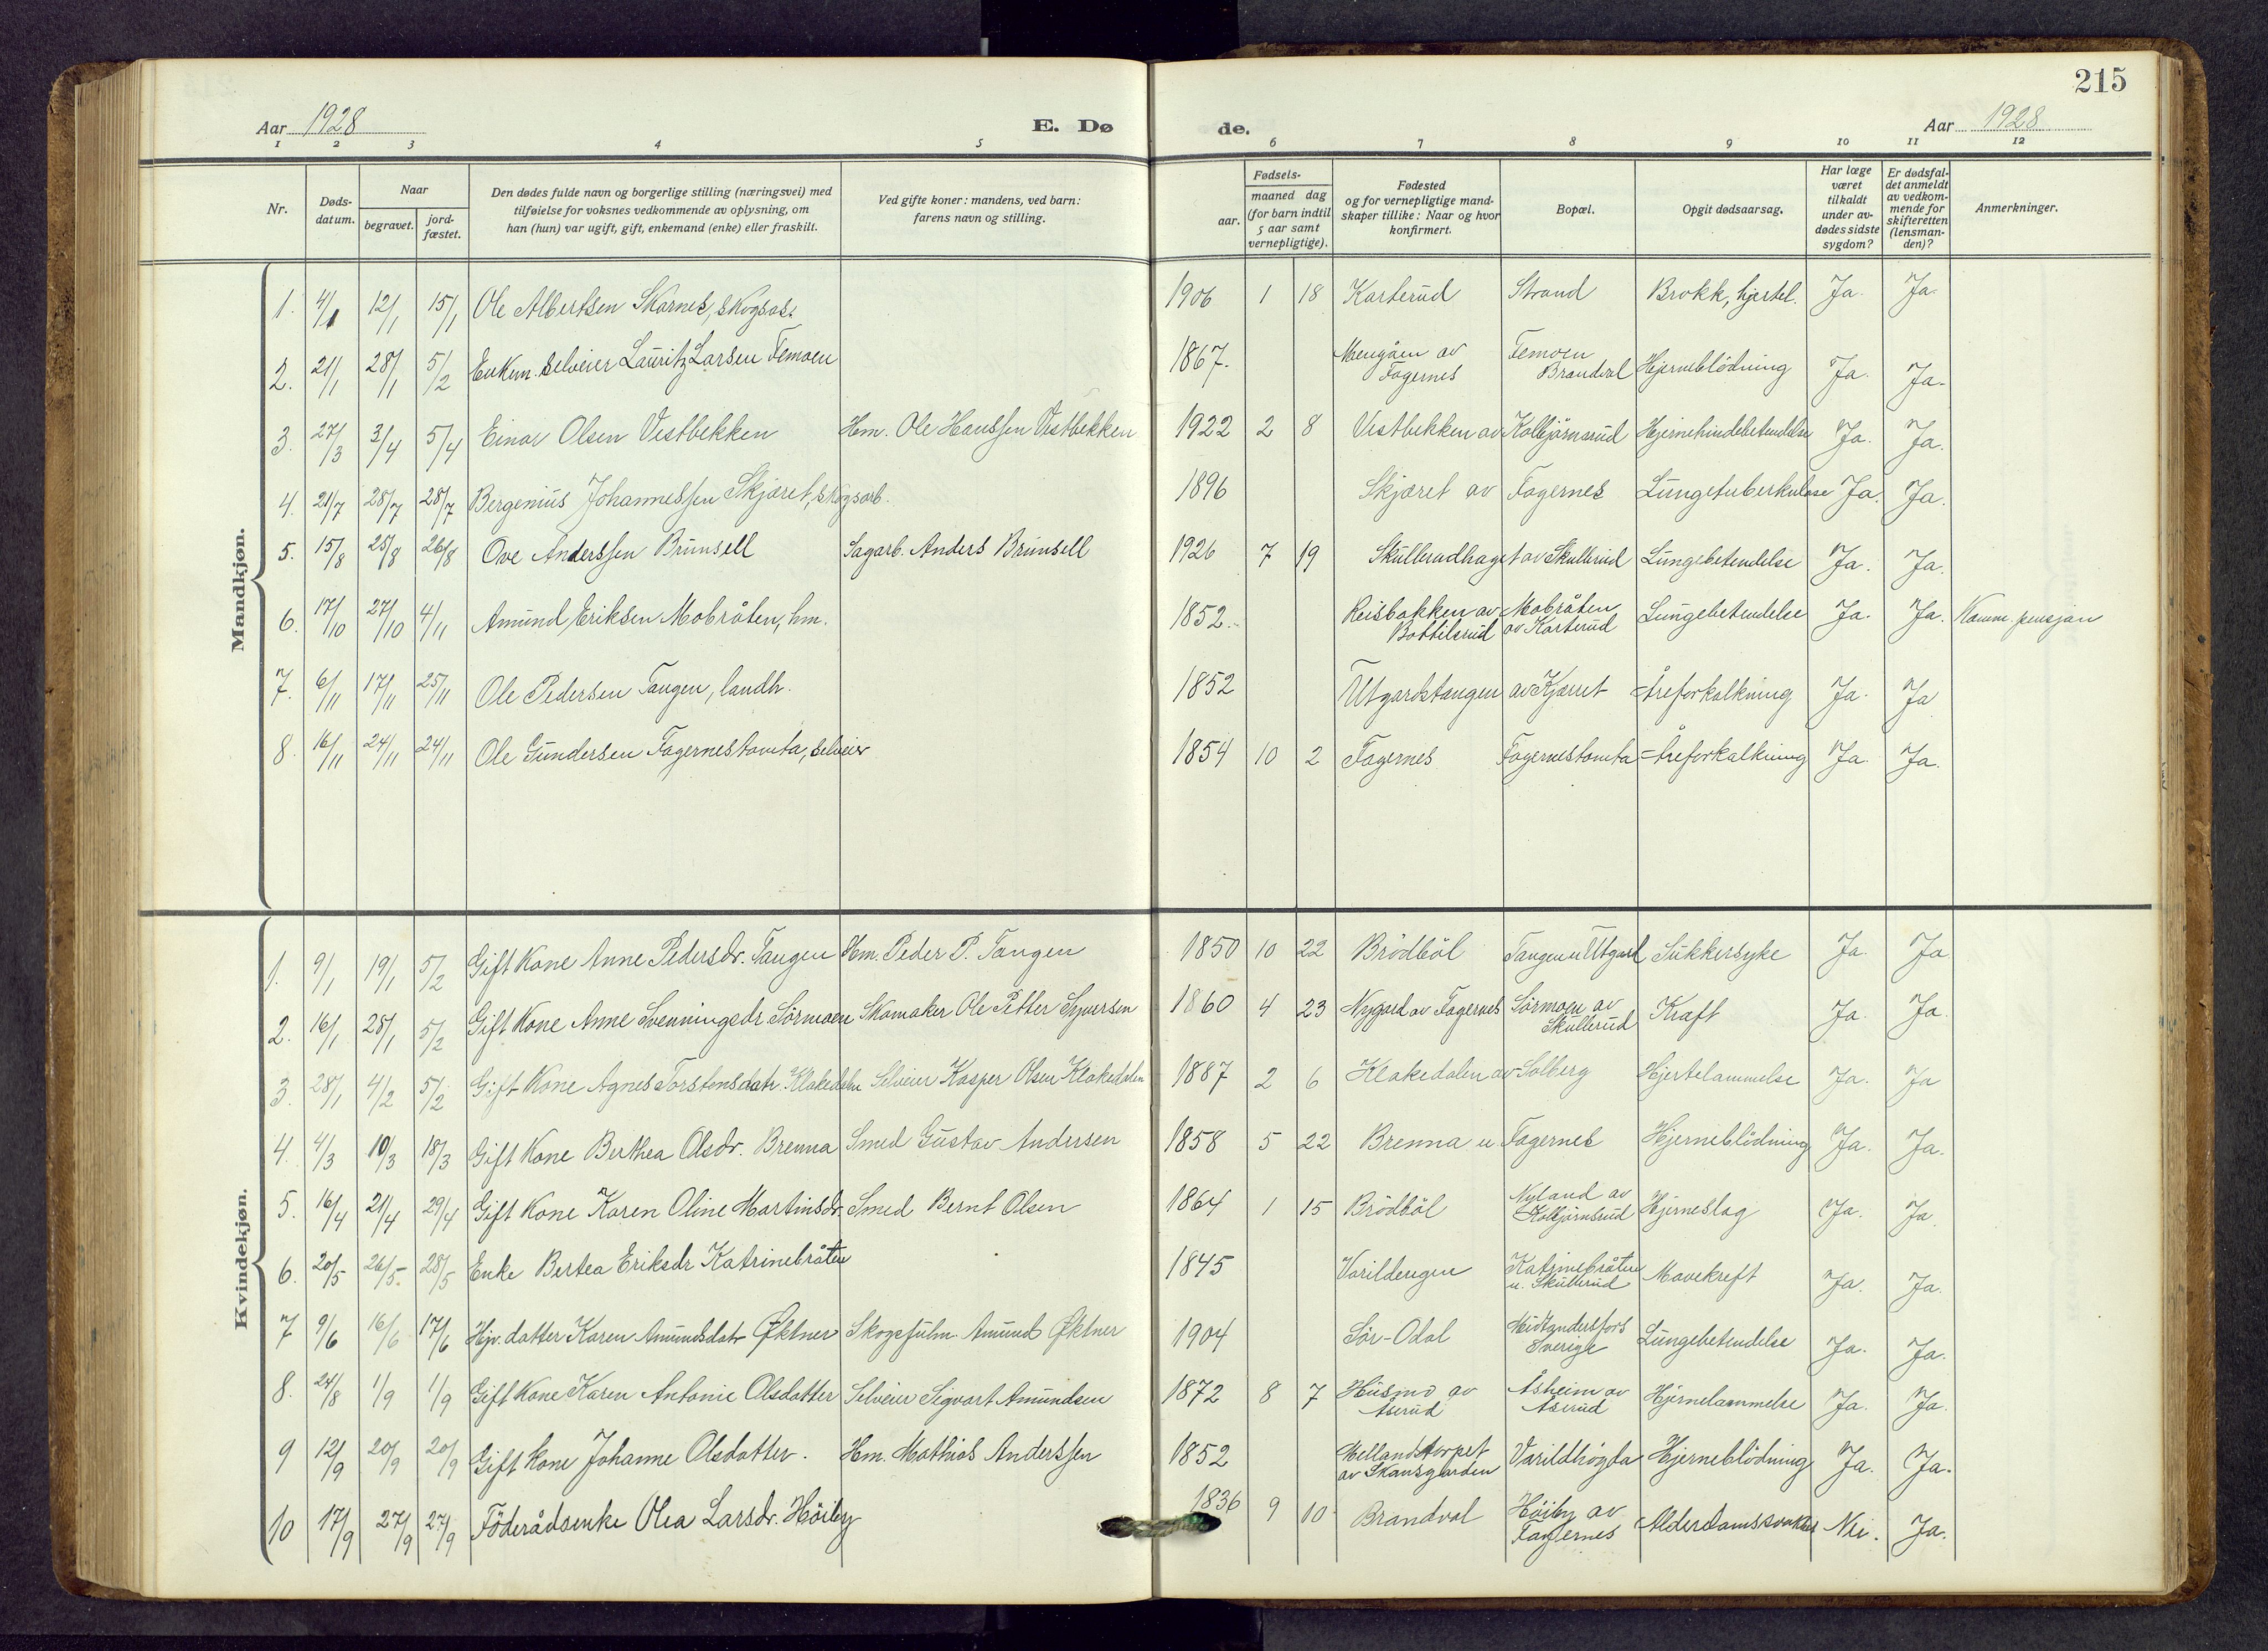 215
Aar 1928
E. Dø
de.
Aar 1928
1 2 3 4 5 6 7 8 9 10 11 12
Nr.
Døds-
datum.
Naar
begravet.
jord-
fæstet.
Den dødes fulde navn og borgerlige stilling (næringsvei) med
tilføielse for voksnes vedkommende av oplysning, om
han (hun) var ugift, gift, enkemand (enke) eller fraskilt.
Ved gifte koner: mandens, ved barn:
farens navn og stilling.
Fødsels-
aar.
maaned dag
(for barn indtil
5 aar samt
vernepligtige).
Fødested
og for vernepligtige mand-
skaper tillike: Naar og hvor
konfirmert.
Bopæl.
Opgit dødsaarsag.
Har læge
været
tilkaldt
under av-
dødes sidste
sygdom?
Er dødsfal-
det anmeldt
av vedkom-
mende for
skifteretten
(lensman-
den)?
Anmerkninger.
Mandkjøn.
1. 4/1 12/1 15/1 Ole Albertsen Skarnes, skogsas. 1906 1 18 Karterud Strand Brokk, hjertel. Ja. Ja.
2. 21/1 28/1 5/2 Enkem. selveier Lauritz Larsen Femoen 1867. av Fagernes Femoen Brandval Hjerneblödning Ja. Ja.
3. 27/3 3/4 5/4 Einar Olsen Vestbekken Hm. Ole Hanssen Vestbekken 1922 2 8 Vestbekken av Kolbjörnsrud Hjernehindebetendelse Ja. Ja.
4. 21/7 28/7 28/7 Bergenius Johannessen Skjæret, skogsarb. 1896 Skjæret av Fagernes Lungetuberkulose Ja. Ja.
5. 15/8 25/8 26/8 Ove Anderssen Brunsell Sagarb. Anders Brunsell 1926 7 19 Skullerudhaget av Skullerud Lungebetendelse Ja. Ja.
6. 17/10 27/10 4/11 Amund Eriksen Mobråten, hm. 1852. Reisbakken av Bottilsrud Mobråten av Karterud Lungebetendelse Ja. Ja. Komm. pensjon
7. 6/11 17/11 25/11 Ole Pedersen Tangen, landh. 1852 Utgardstangen av Kjærret Åreforkalkning Ja. Ja
8. 16/11 24/11 24/11 Ole Gundersen Fagernestomta, selveier 1854 10 2 Fagernes Fagernestomta Åreforkalkning Ja. Ja.
Kvindekjøn.
1. 9/1 19/1 5/2 Gift Kone Anne Pedersdr. Tangen Hm. Peder P. Tangen 1850 10 22 Brödböl Tangen u. Utgard Sukkersyke Ja. Ja
2. 16/1 28/1 5/2 Gift Kone Anne Svenningsdr. Sörmoen Skomaker Ole Petter Syversen 1860 4 23 Nygard av Fagernes Sörmoen av Skullerud Kræft Ja. Ja.
3. 28/1 4/2 5/2 Gift Kone Agnes Torstensdatr. Klakedalen Selveier Kasper Olsen Klakedalen 1887 2 6 Klakedalen av Solberg Hjertelammelse Ja. Ja
4. 4/3 10/3 18/3 Gift Kone Berthea Olsdr. Brenna Smed Gustav Andersen 1858 5 22 Brenna u Fagernes Hjerneblödning Ja. Ja.
5. 16/4 21/4 29/4 Gift Kone Karen Oline Martinsdr. Smed Bernt Olsen 1864 1 15 Brödböl Nyland av Kolbjörnsrud Hjerneslag Ja. Ja.
6. 20/5 26/5. 28/5 Enke Bertea Eriksdr Katrinebråten 1845 Varildengen Katrinebråten u. Skullerud Mavekreft Ja. Ja.
7 9/6 16/6 17/6 Hjv. datter Karen Amundsdatr Øktner Skogsfulm. Amund Øktner 1904 Sör-Odal Midtandersfors Sverige Lungebetendelse Ja. Ja.
8. 24/8 1/9 1/9 Gift Kone Karen Antonie Olsdatter Selveier Sigvart Amundsen 1872 8 7 Husmo av Åserud Åsheim av Åserud Hjernelammelse Ja. Ja.
9 12/9 20/9 20/9 Gift Kone Johanne Olsdatter. Hm. Mathias Anderssen 1852 Mellandstorpet av Skansgarden Varildhögda Hjerneblödning Ja. Ja.
10 17/9 27/9 27/9 Föderådsenke Olea Larsdr. Höiby 1836 9 10 Brandval Höiby av Fagernes Alderdomssvakhet Nei. Ja.